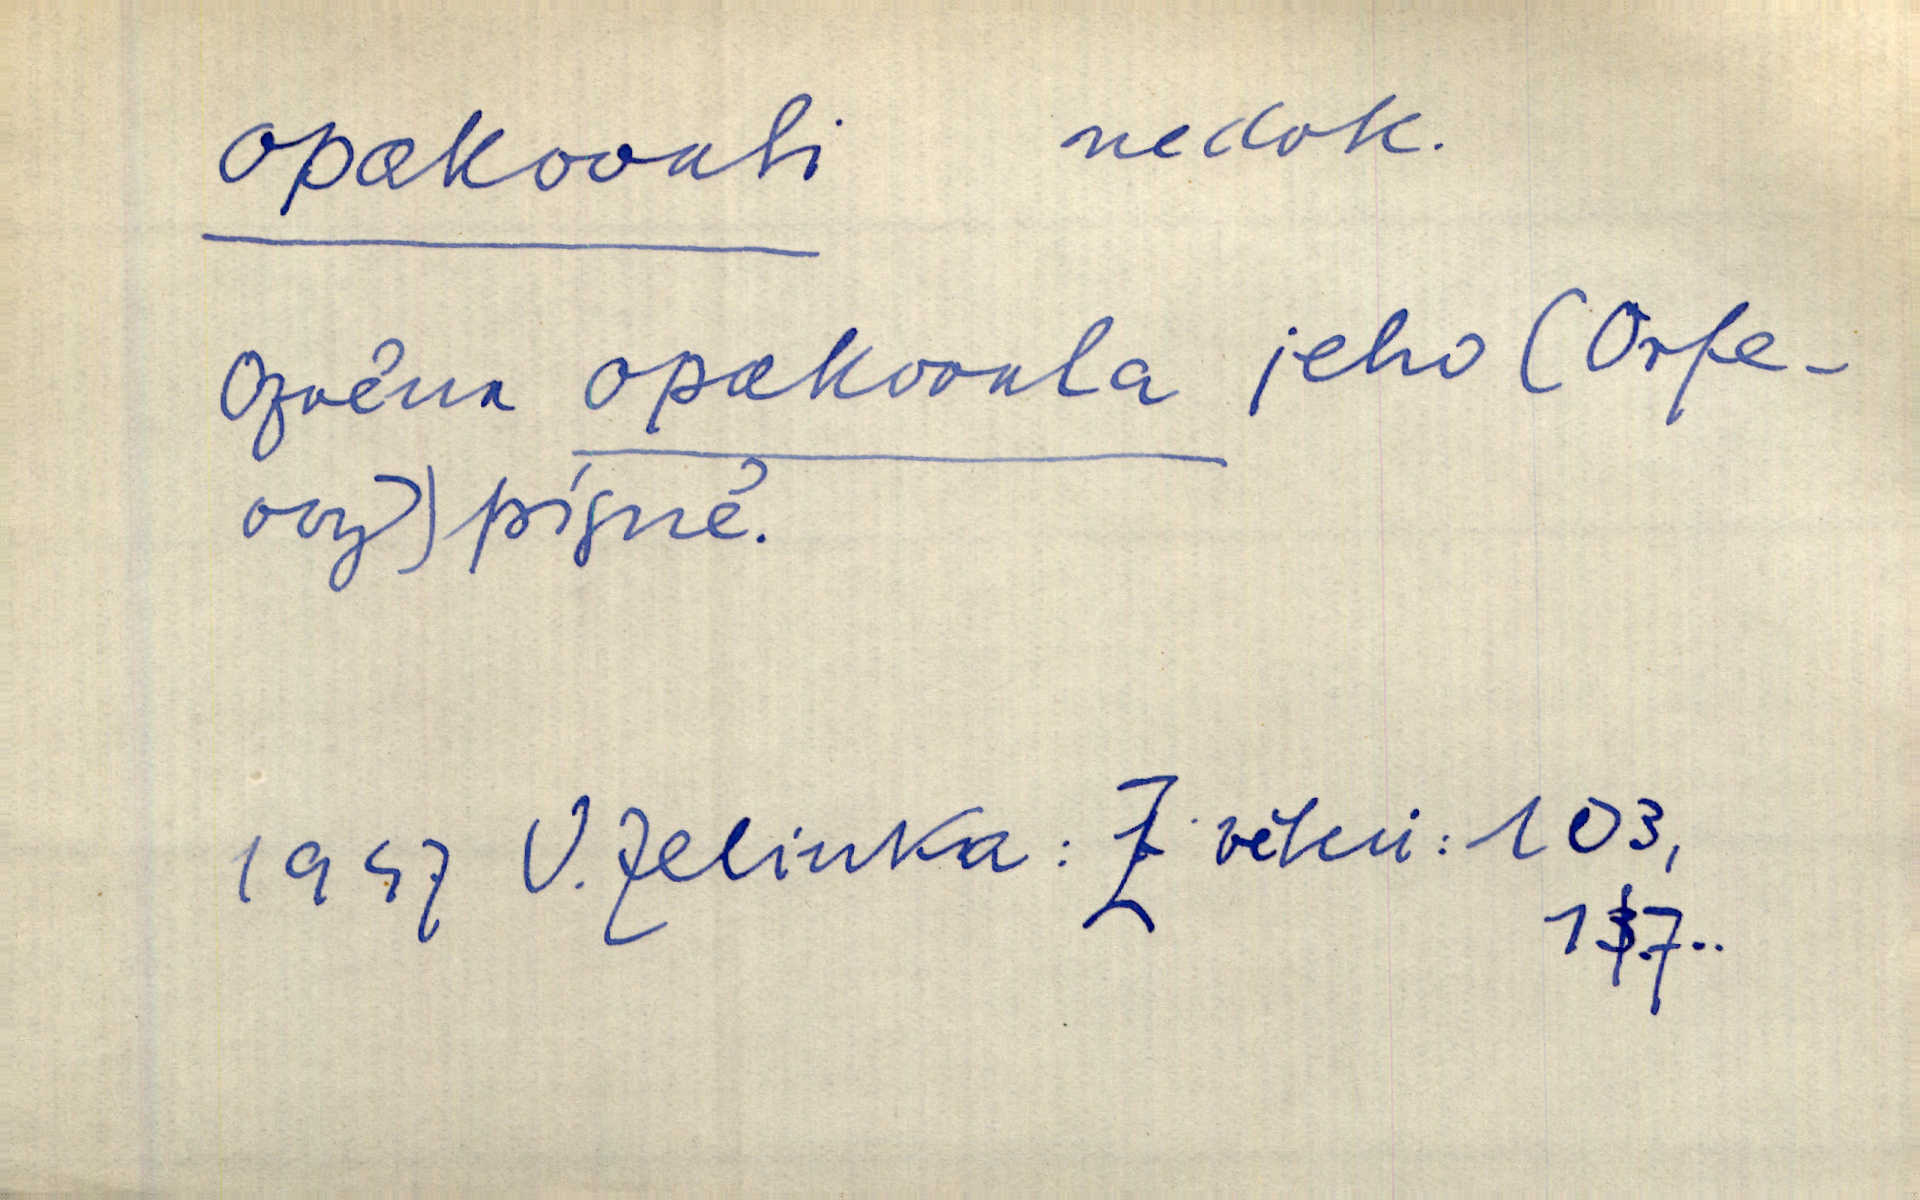 opakovati nedok.
Ozvěna opakovala jeho (Orfe-
ovy) písně.
1947 V. Zelinka: Z větru: 103,
137..